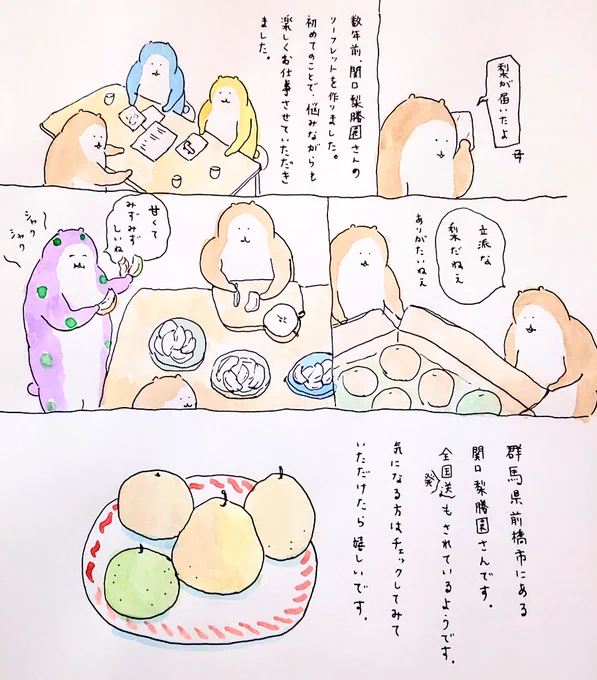 梨が届いたよ
母
数年前、関口梨勝園さんの
リーフレットを作りました。
初めてのことで、悩みながらも
楽しくお仕事させていただき
ました。
立派な
梨だねえ
ありがたいねえ
甘くて
みずみず
しいね
シャク
シャク
群馬県前橋市にある
関口梨勝園さんです。
全国発送もされているようです。
気になる方はチェックしてみて
いただけたら嬉しいです。